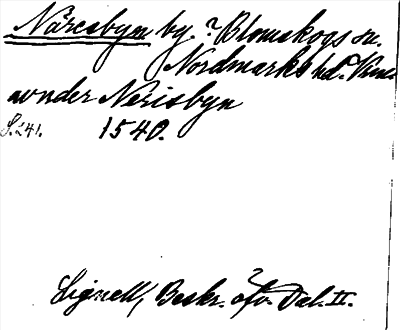 Närcsbyn by. ? Blomskogs sn.
Nordmarks hd.
under Nerisbyn
S. 241. 1540.
Lignell, Beskr. öfv. Dal. II.